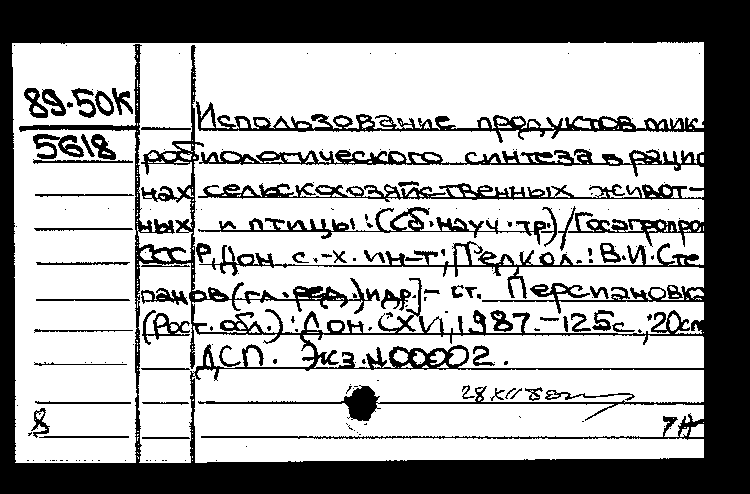 89-50К
5618
Использование продуктов мик-
робиологического синтеза в рацио
нах сельскохозяйственных живот-
ных и птицы: (Сб. науч. тр.) / Госагропром
СССР, Дон. с.-х. ин-т; [Редкол.: В.И. Сте
панов (гл. ред.) и др.] - ст. Персиановка
(Рост. обл.): Дон. СХИ, 1987. - 125с.; 20см
ДСП. Экз. N00002.
28 XII 88
8
7А